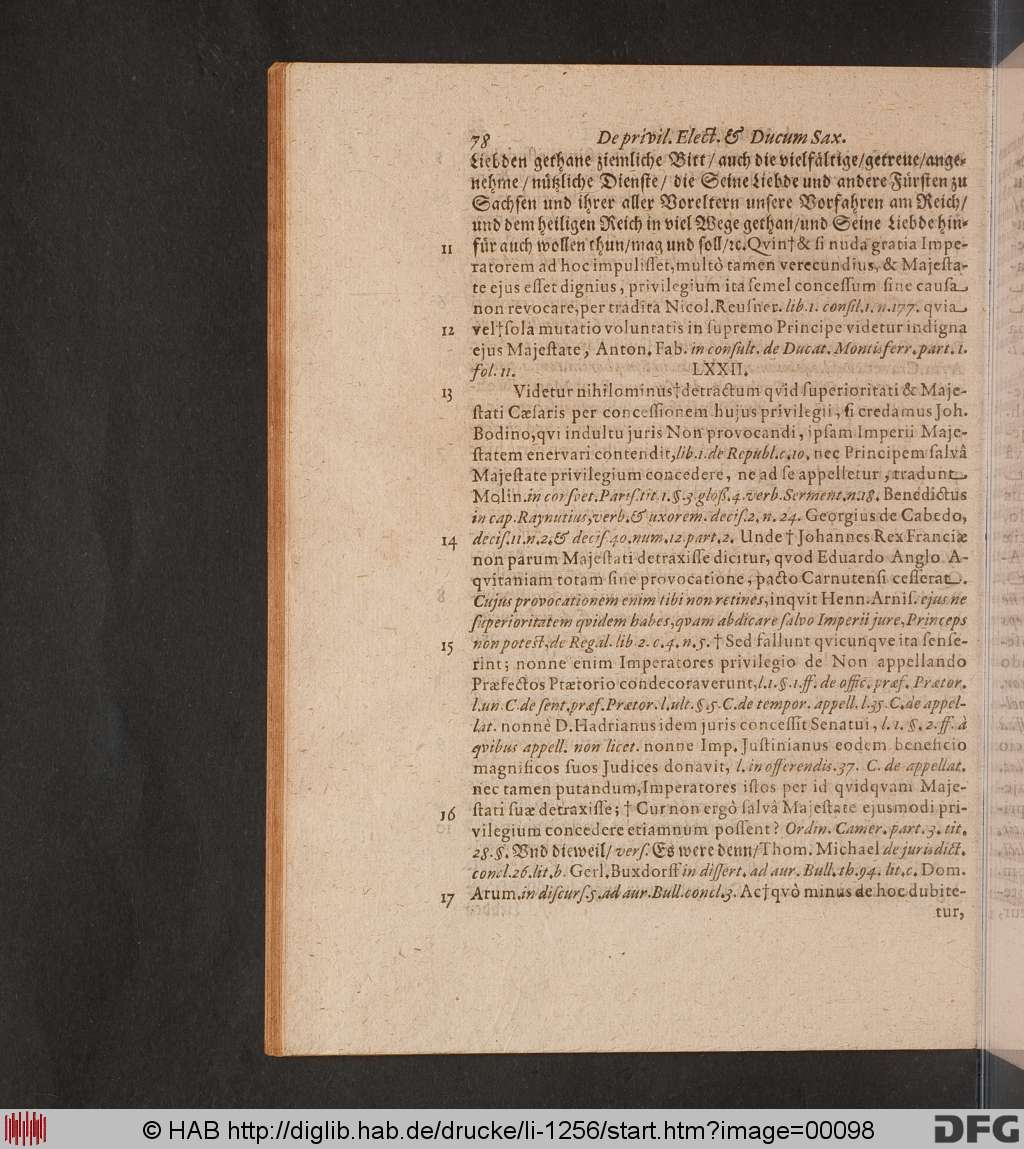 78 De privil. Elect. & Ducum Sax.
Liebden gethane ziemliche Bitt/ auch die vielfältige/getreue/ange-
nehme/ nützliche Dienste/ die Seine Liebde und andere Fürsten zu
Sachsen und ihrer aller Voreltern unsere Vorfahren am Reich/
und dem heiligen Reich in viel Wege gethan/und Seine Liebde hin-
11 für auch wollen thun/mag und soll/ꝛc. Qvin†& si nuda gratia Impe-
ratorem ad hoc impulisset, multò tamen verecundius, & Majesta-
te ejus esset dignius, privilegium ita semel concessum sine causa
non revocare, per tradita Nicol. Reusner. lib. 1. consil. 1. n. 177. qvia
12 vel†sola mutatio voluntatis in supremo Principe videtur indigna
ejus Majestate, Anton. Fab. in consult. de Ducat. Montisferr. part. 1.
fol. 11. LXXII.
13 Videtur nihilominus†detractum qvid superioritati & Maje-
stati Cæsaris per concessionem hujus privilegii, si credamus Joh.
Bodino, qvi indultu juris Non provocandi, ipsam Imperii Maje-
statem enervari contendit, lib. 1. de Republ. c. 10. nec Principem salvâ
Majestate privilegium concedere, ne ad se appelletur, tradunt
Molin. in consvet. Paris. tit. 1. §. 3 gloß. 4. verb. Serment. n. 18. Benedictus
in cap. Raynutius, verb. & uxorem. decis. 2. n. 24. Georgius de Cabedo,
14 decis. 11. n. 2. & decis. 40. num. 12 part. 2. Unde † Johannes Rex Franciæ
non parum Majestati detraxisse dicitur, qvod Eduardo Anglo A-
qvitaniam totam sine provocatione, pacto Carnutensi cesserat.
Cujus provocationem enim tibi non retines, inqvit Henn. Arnis. ejus ne
superioritatem qvidem habes, qvam abdicare salvo Imperii jure, Princeps
15 non potest, de Regal. lib 2. c. 4. n. 5. † Sed fallunt qvicunqve ita sense-
rint; nonne enim Imperatores privilegio de Non appellando
Præfectos Prætorio condecoraverunt, l. 1. §. 1. ff. de offic. præf. Prætor.
l. un. C. de sent. præf. Prætor. l. ult. §. 5. C. de tempor. appell. l. 35. C. de appel-
lat. nonnè D. Hadrianus idem juris concessit Senatui, l. 1. §. 2. ff. à
qvibus appell. non licet. nonne Imp. Justinianus eodem beneficio
magnificos suos Judices donavit, l. in offerendis. 37. C. de appellat.
nec tamen putandum, Imperatores istos per id qvidqvam Maje-
16 stati suæ detraxisse; † Cur non ergò salvâ Majestate ejusmodi pri-
vilegium concedere etiamnum possent? Ordin. Camer. part. 3. tit.
28. §. Und dieweil/ vers. Es were denn/ Thom. Michael de jurisdict.
concl. 26. lit. b. Gerl. Buxdorff in dissert. ad aur. Bull. th. 94. lit. c. Dom.
17 Arum. in discurs. 5. ad aur. Bull. concl. 3. Ac†qvò minus de hoc dubite-
tur,
© HAB http://diglib.hab.de/drucke/li-1256/start.htm?image=00098
DFG